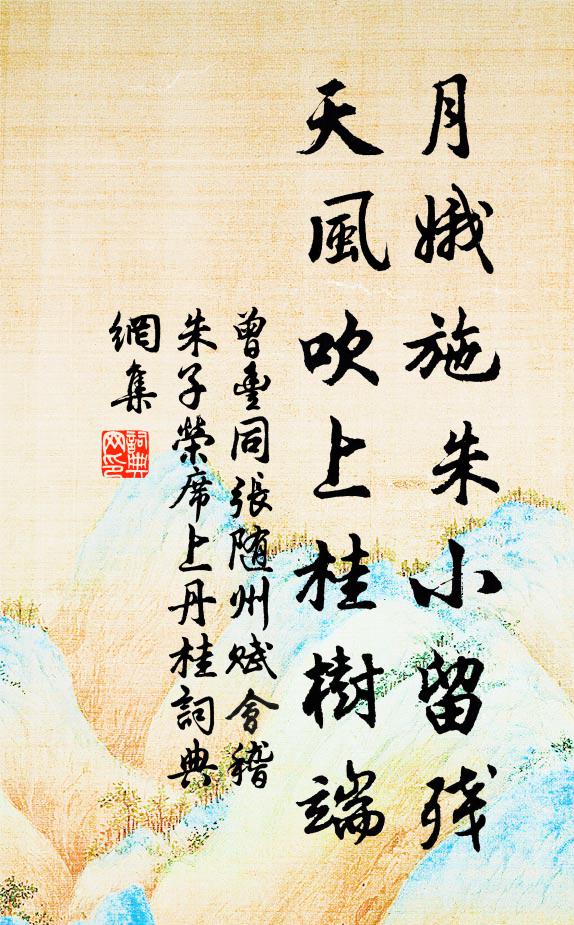 月娥施朱小留残
天風吹上桂樹端
曾豊同張随州赋會稽
朱子榮席上丹桂詞典
網集
詞典
网印